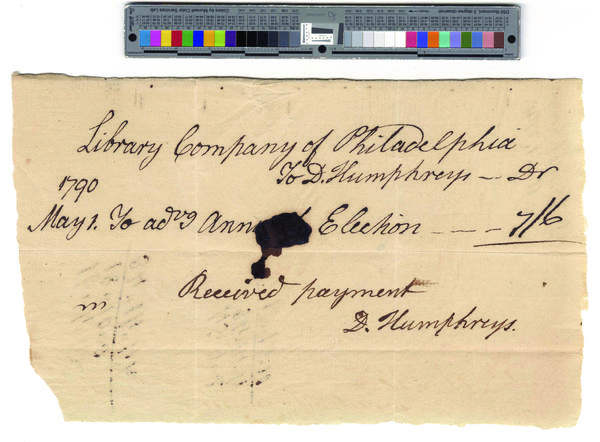 Library Company of Philadelphia
To D. Humphreys -- Dr
1790
May 1. To advg Election -- -- 7/6
Received payment
D. Humphreys.